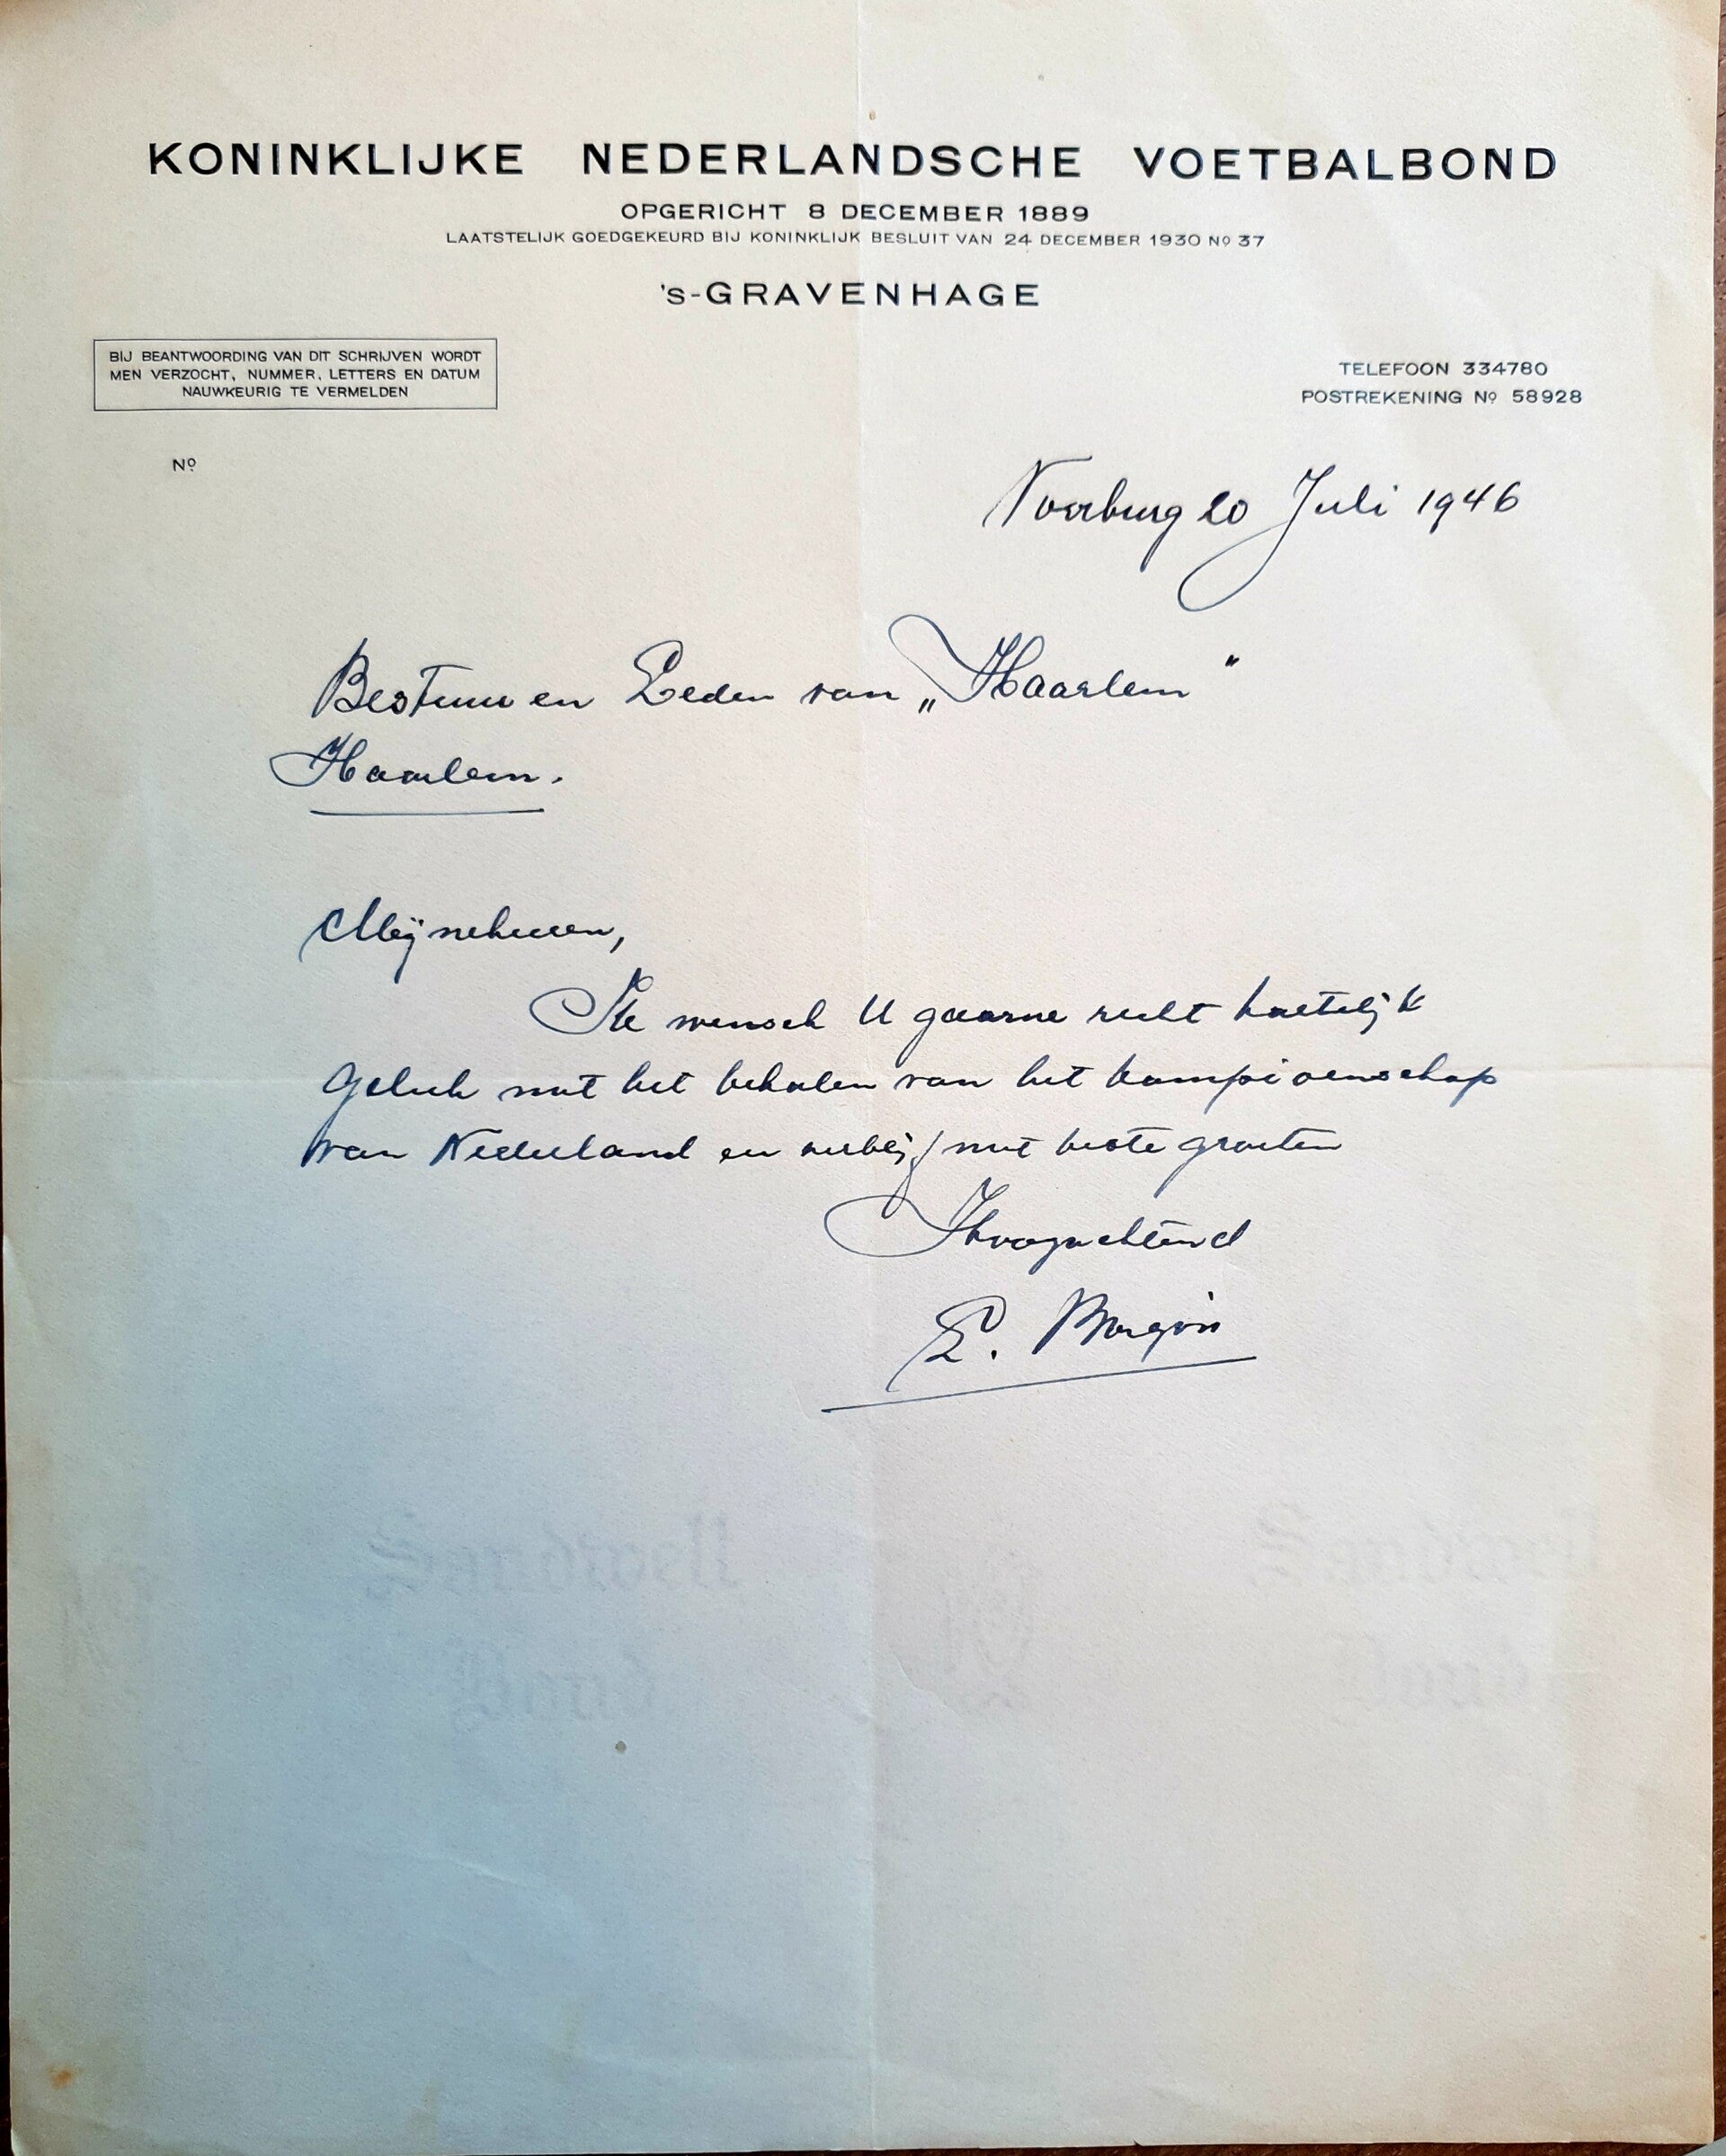 KONINKLIJKE NEDERLANDSCHE VOETBALBOND
OPGERICHT 8 DECEMBER 1889
LAATSTELIJK GOEDGEKEURD BIJ KONINKLIJK BESLUIT VAN 24 DECEMBER 1930 Nº 37
's-GRAVENHAGE
BIJ BEANTWOORDING VAN DIT SCHRIJVEN WORDT
MEN VERZOCHT, NUMMER, LETTERS EN DATUM
NAUWKEURIG TE VERMELDEN
TELEFOON 334780
POSTREKENING Nº 58928
Nº
Voorburg 20 Juli 1946
Bestuur en Leden van „Haarlem"
Haarlem.
Mijneheeren,
Ik wensch U gaarne recht hartelijk
geluk met het behalen van het kampioenschap
van Nederland en verblijf met beste groeten
Hoogachtend
E.
Sandwell
Bond
Sandwell
Bond